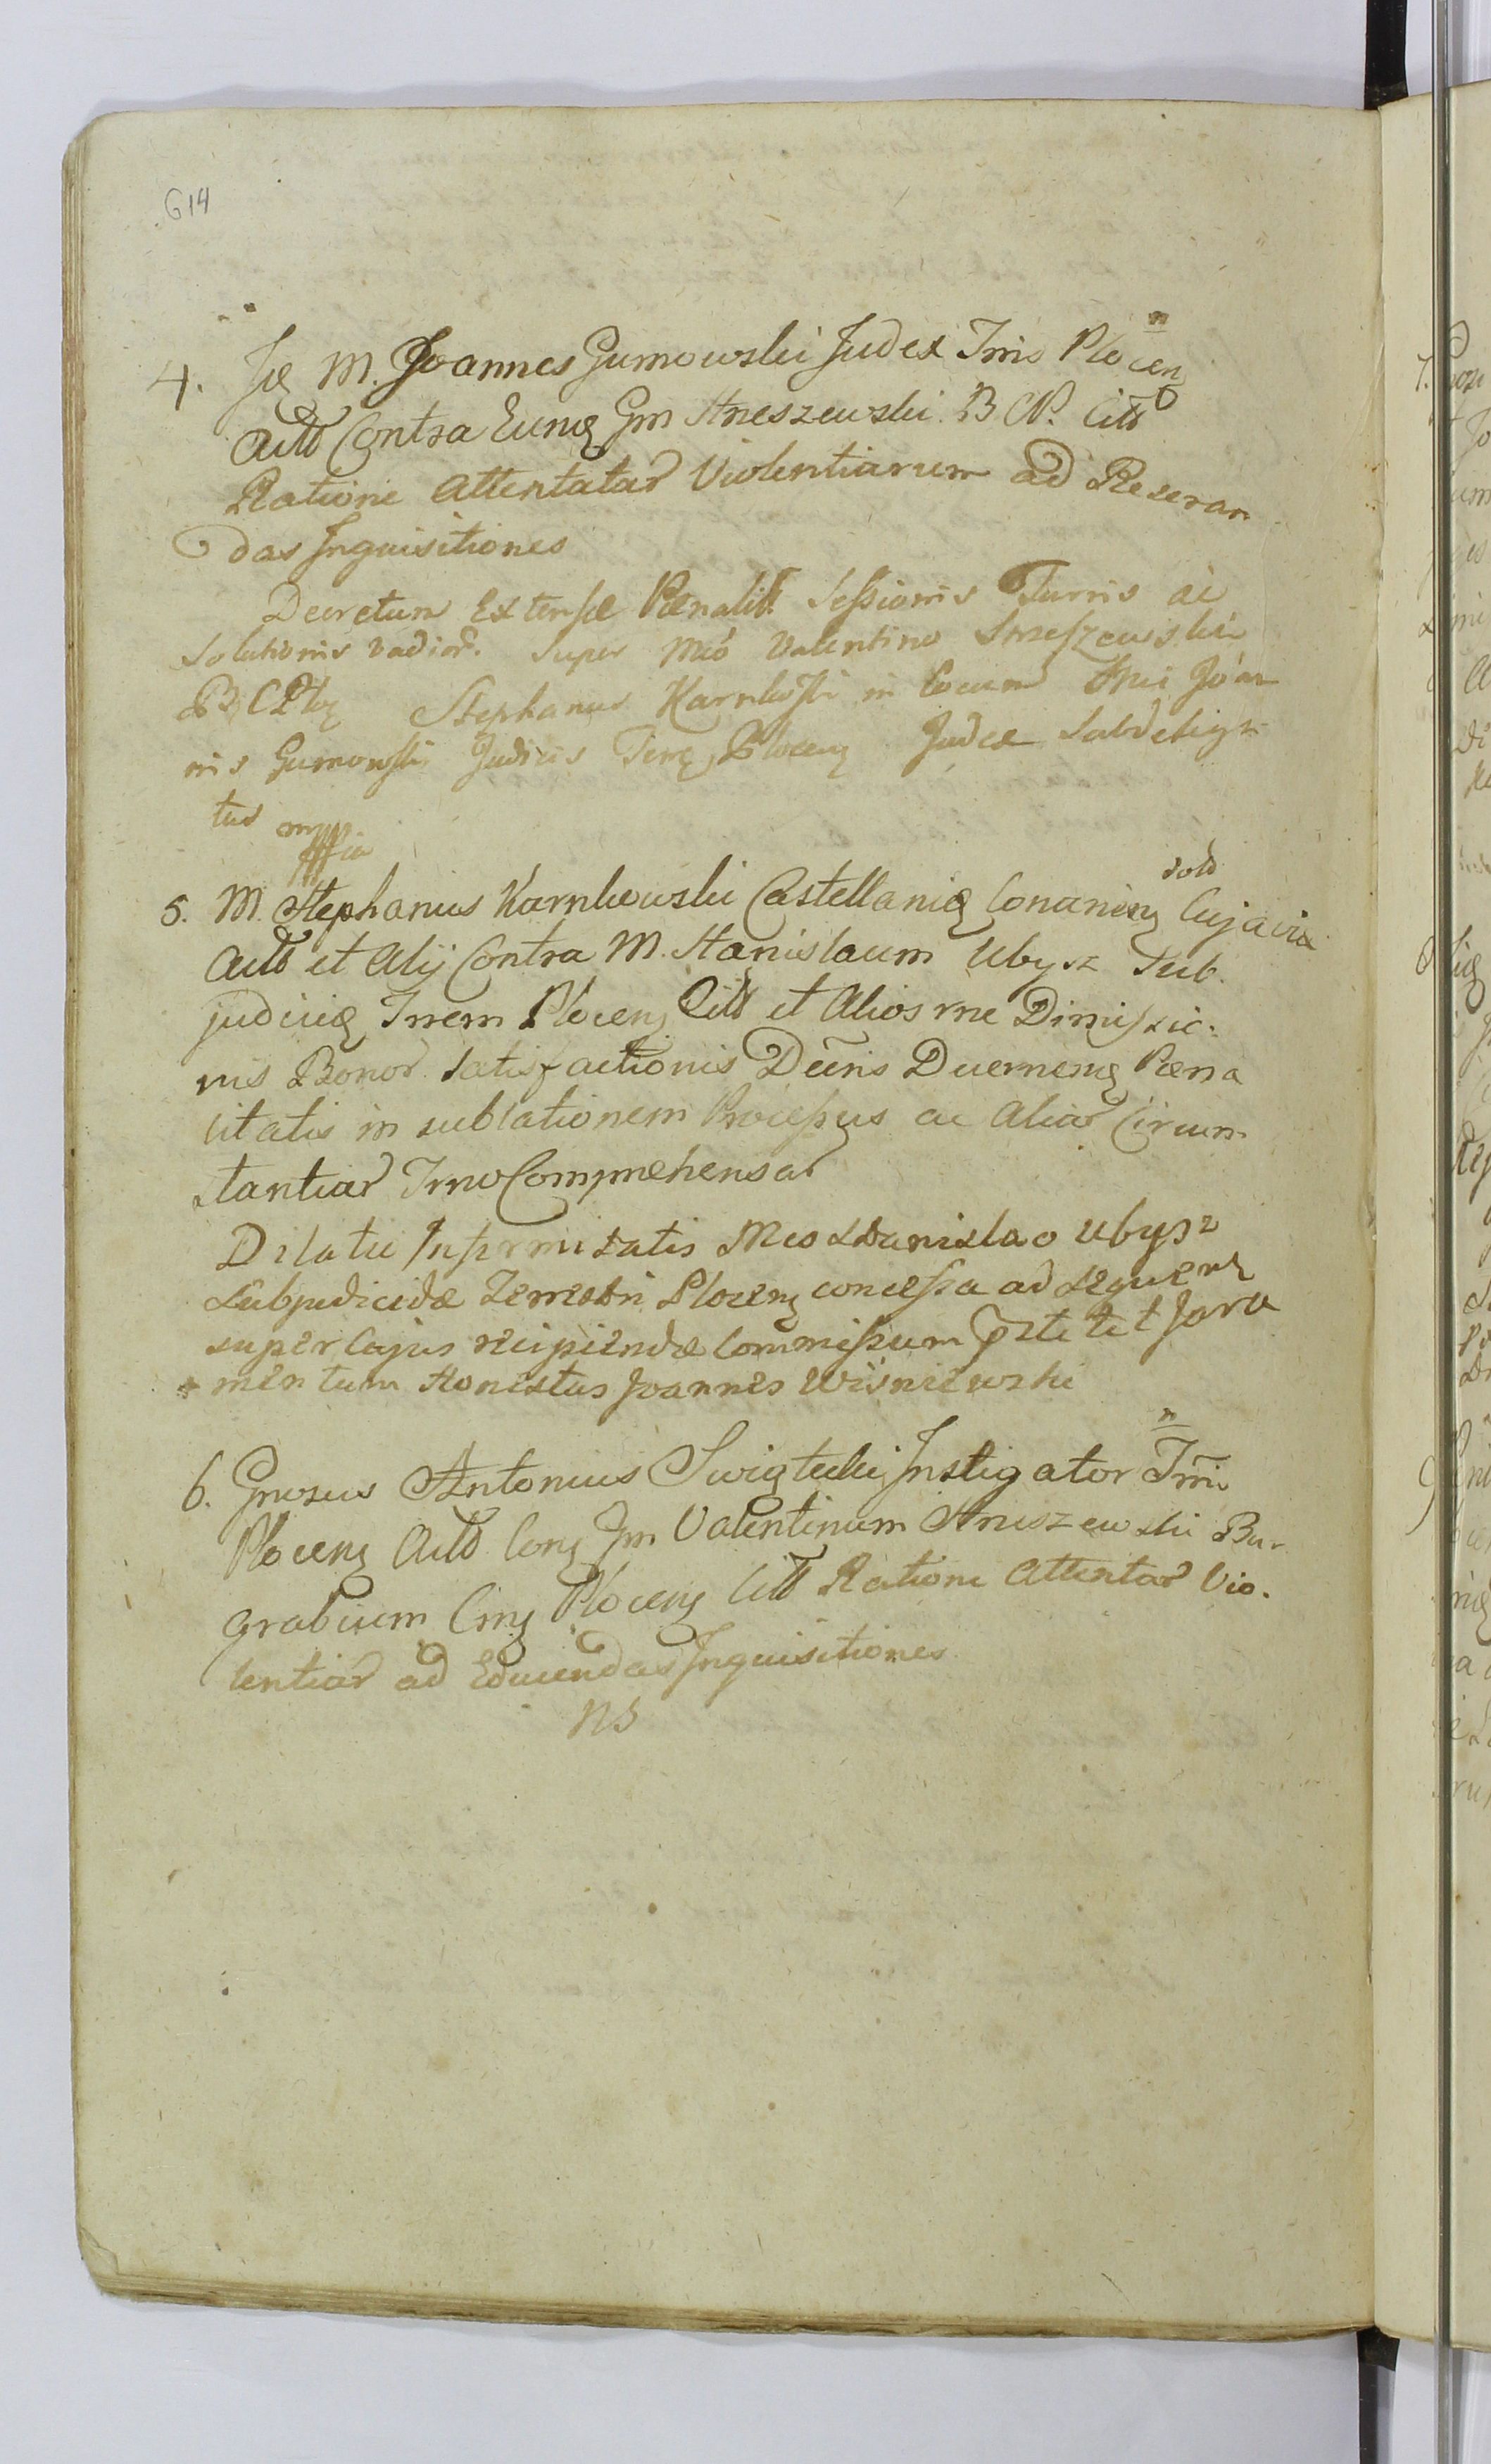 614
n
4. Jd M. Joannes Gumowski Judex Trris Plocen
Actt Contra Eund Gm Strzeszewski B C P. Citt
Ratione Attentatar Violentiarum ad Reseran
das Inquisitiones
Decretum Extensæ Pœnalitt Sessionis Turris ac
Solutionis vadior. super Mco Valentino Strzeszewski
B C Plo Stephanus Karnkoski in locum Joan
nis Gumowski Judicis Terr Plocen Judex Subdeliga
tus mppria
sold
5. M. Stephanus Karnkowski Castellanid Conarien Cujavia
Actt et Alij Contra M. Stanislaum Ubysz Sub.
judicid Trrem Plocen Citt et Alios rne Dimissio.
nis Bonor satisfactionis Decris Pœna
litatis in sublationem Processus ac Aliar Circum
stantiar Trno Comprehensar
Dilatio Infirmitatis Mco Stanislao Ubysz
Subjudicidæ Terrestri Plocen concessa ad sequen
super cujus recipiendæ commissum pstitit Jura
mentum Honestus Joannes Wiśniewski
n
6. Gnrosus Antonius Swigtecki Instigator Trri
Plocen Actt Con Gm Valentinum Strzeszewski Bur
grabium Cm Plocen Citt Ratione Attentar Vio.
lentiar ad Educendas Inquisitiones
NS